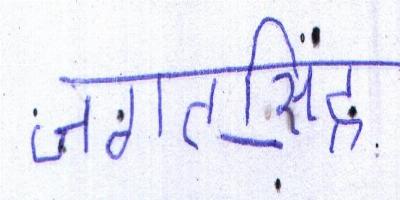 जगत सिंह